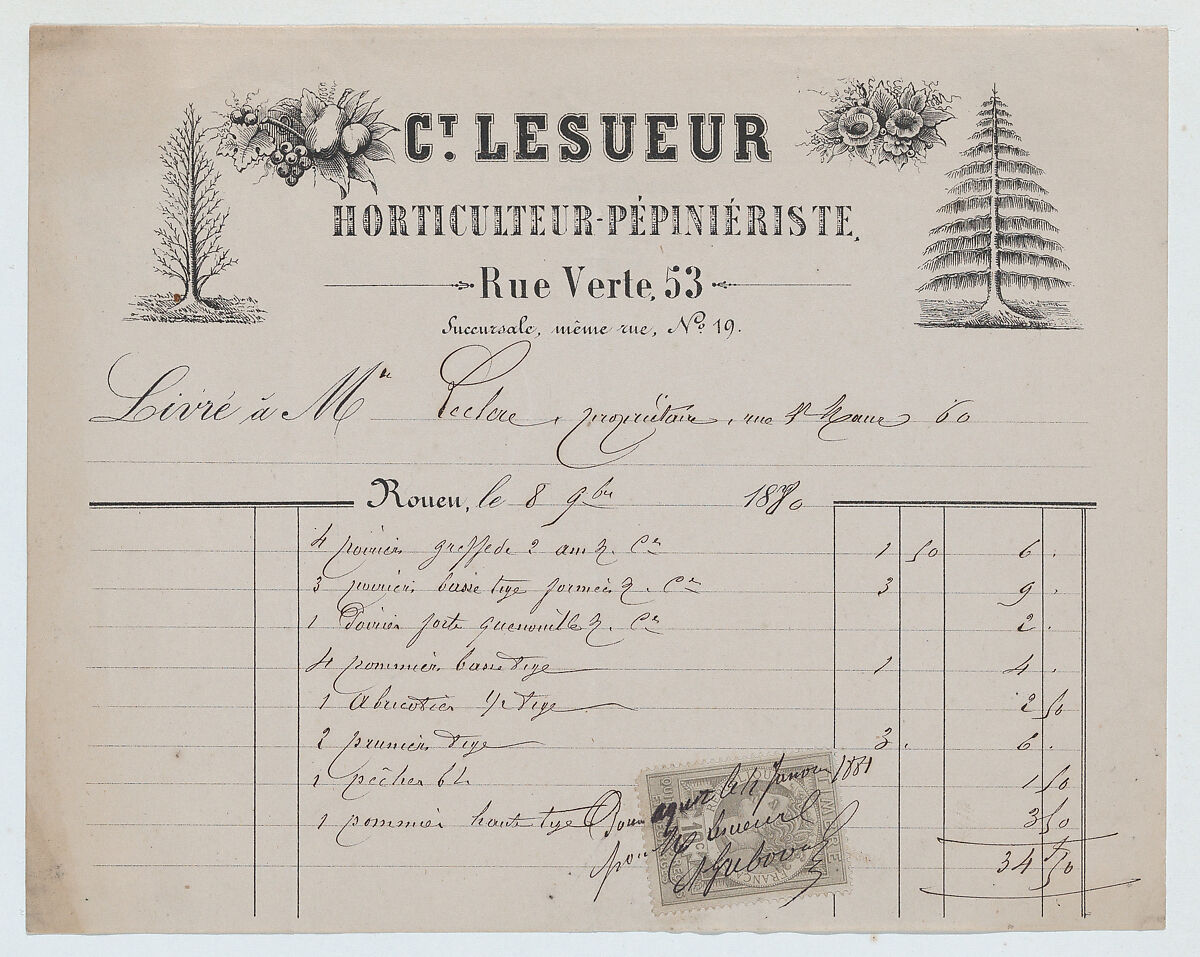 CT. LESUEUR
HORTICULTEUR-PÉPINIÉRISTE,
Rue Verte, 53
Succursale, même rue, No 19.
Livré à Mr Leclerc, propriétaire, rue St 60
Rouen, le 8 9bre 1880
4 poiriers greffe de 2 ans 1 50 6 .
3 poiriers basse tige formés 3 9 .
1 Poirier forte quenouille 2 .
4 pommiers basse tige 1 4 .
1 Abricotier 1/2 tige 2 50
2 pruniers tige 3 . 6 .
1 pêcher 1 50
1 pommier haute tige 3 50
34 50
Pour acquit le Janvier 1881
pour Lesueur